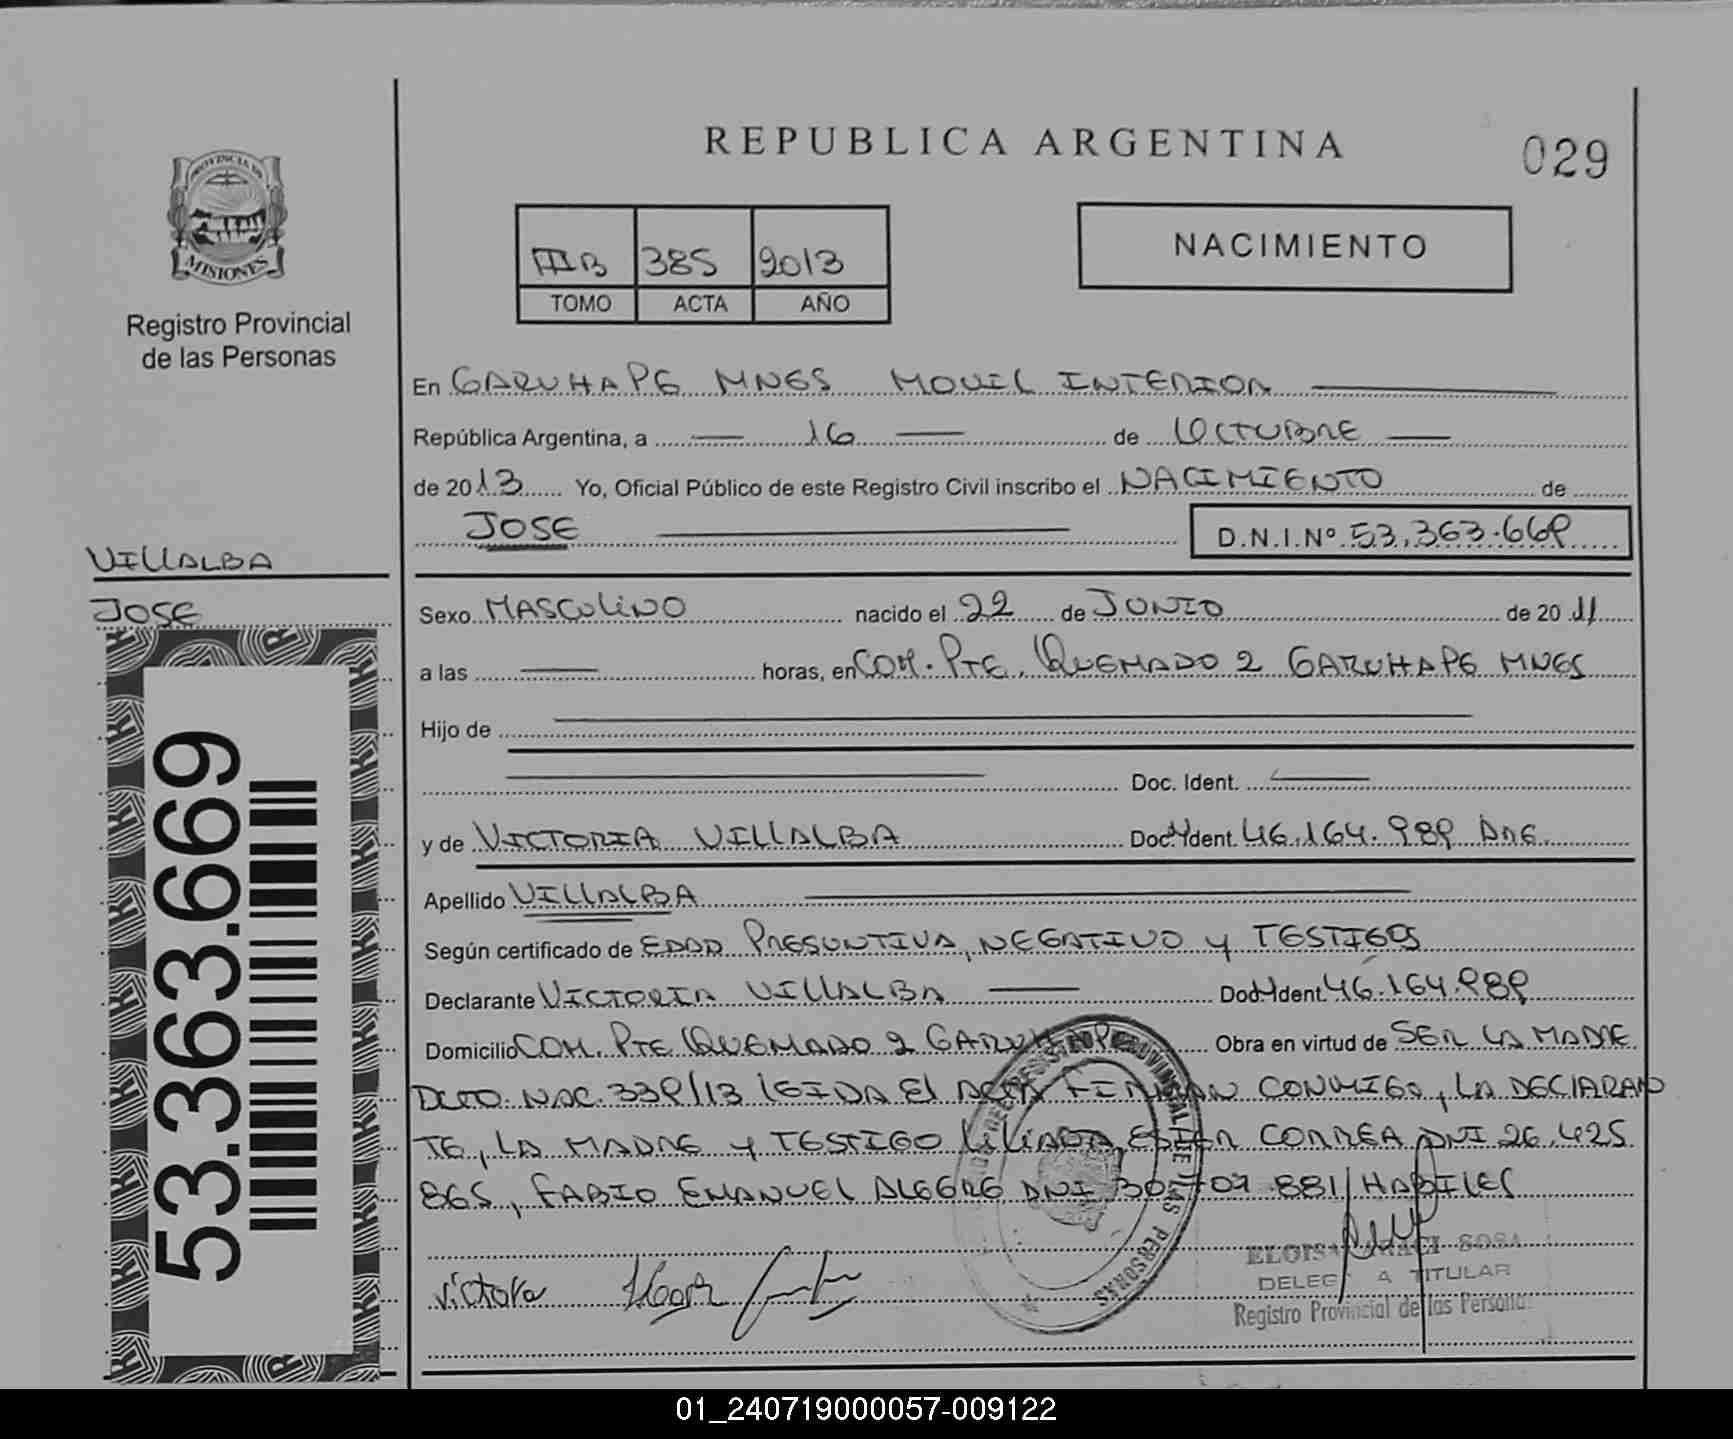 REPUBLICA ARGENTINA
029
PROVINCIA DE
MISIONES
Registro Provincial
de las Personas
III B 385 2013
TOMO ACTA AÑO
NACIMIENTO
En GARUHAPE MNES MOVIL INTERIOR
República Argentina, a 16 de OCTUBRE
de 2013 Yo, Oficial Público de este Registro Civil inscribo el NACIMIENTO de
JOSE D.N.I.Nº 53.363.669
VILLALBA
JOSE
53.363.669
Sexo MASCULINO nacido el 22 de JUNIO de 2011
a las horas, en COM. PTE. QUEMADO 2 GARUHAPE MNES
Hijo de
Doc. Ident.
y de VICTORIA VILLALBA Doc. Ident. 46.164.989 ARG.
Apellido VILLALBA
Según certificado de EDAD PRESUNTIVA, NEGATIVO Y TESTIGOS
Declarante VICTORIA VILLALBA Doc. Ident. 46.164.989
Domicilio COM. PTE QUEMADO 2 GARUHAPE Obra en virtud de SER LA MADRE
DCTO. NAC. 339/13 LEIDA El ACTA FIRMAN CONMIGO, LA DECLARAN
TE, LA MADRE Y TESTIGO LILIANA ESTER CORREA DNI 26.425.
865, FABIO EMANUEL ALEGRE DNI 30.707.881/HABILES
victoria
ELOISA SOSA
DELEGADA TITULAR
Registro Provincial de las Personas
01_240719000057-009122